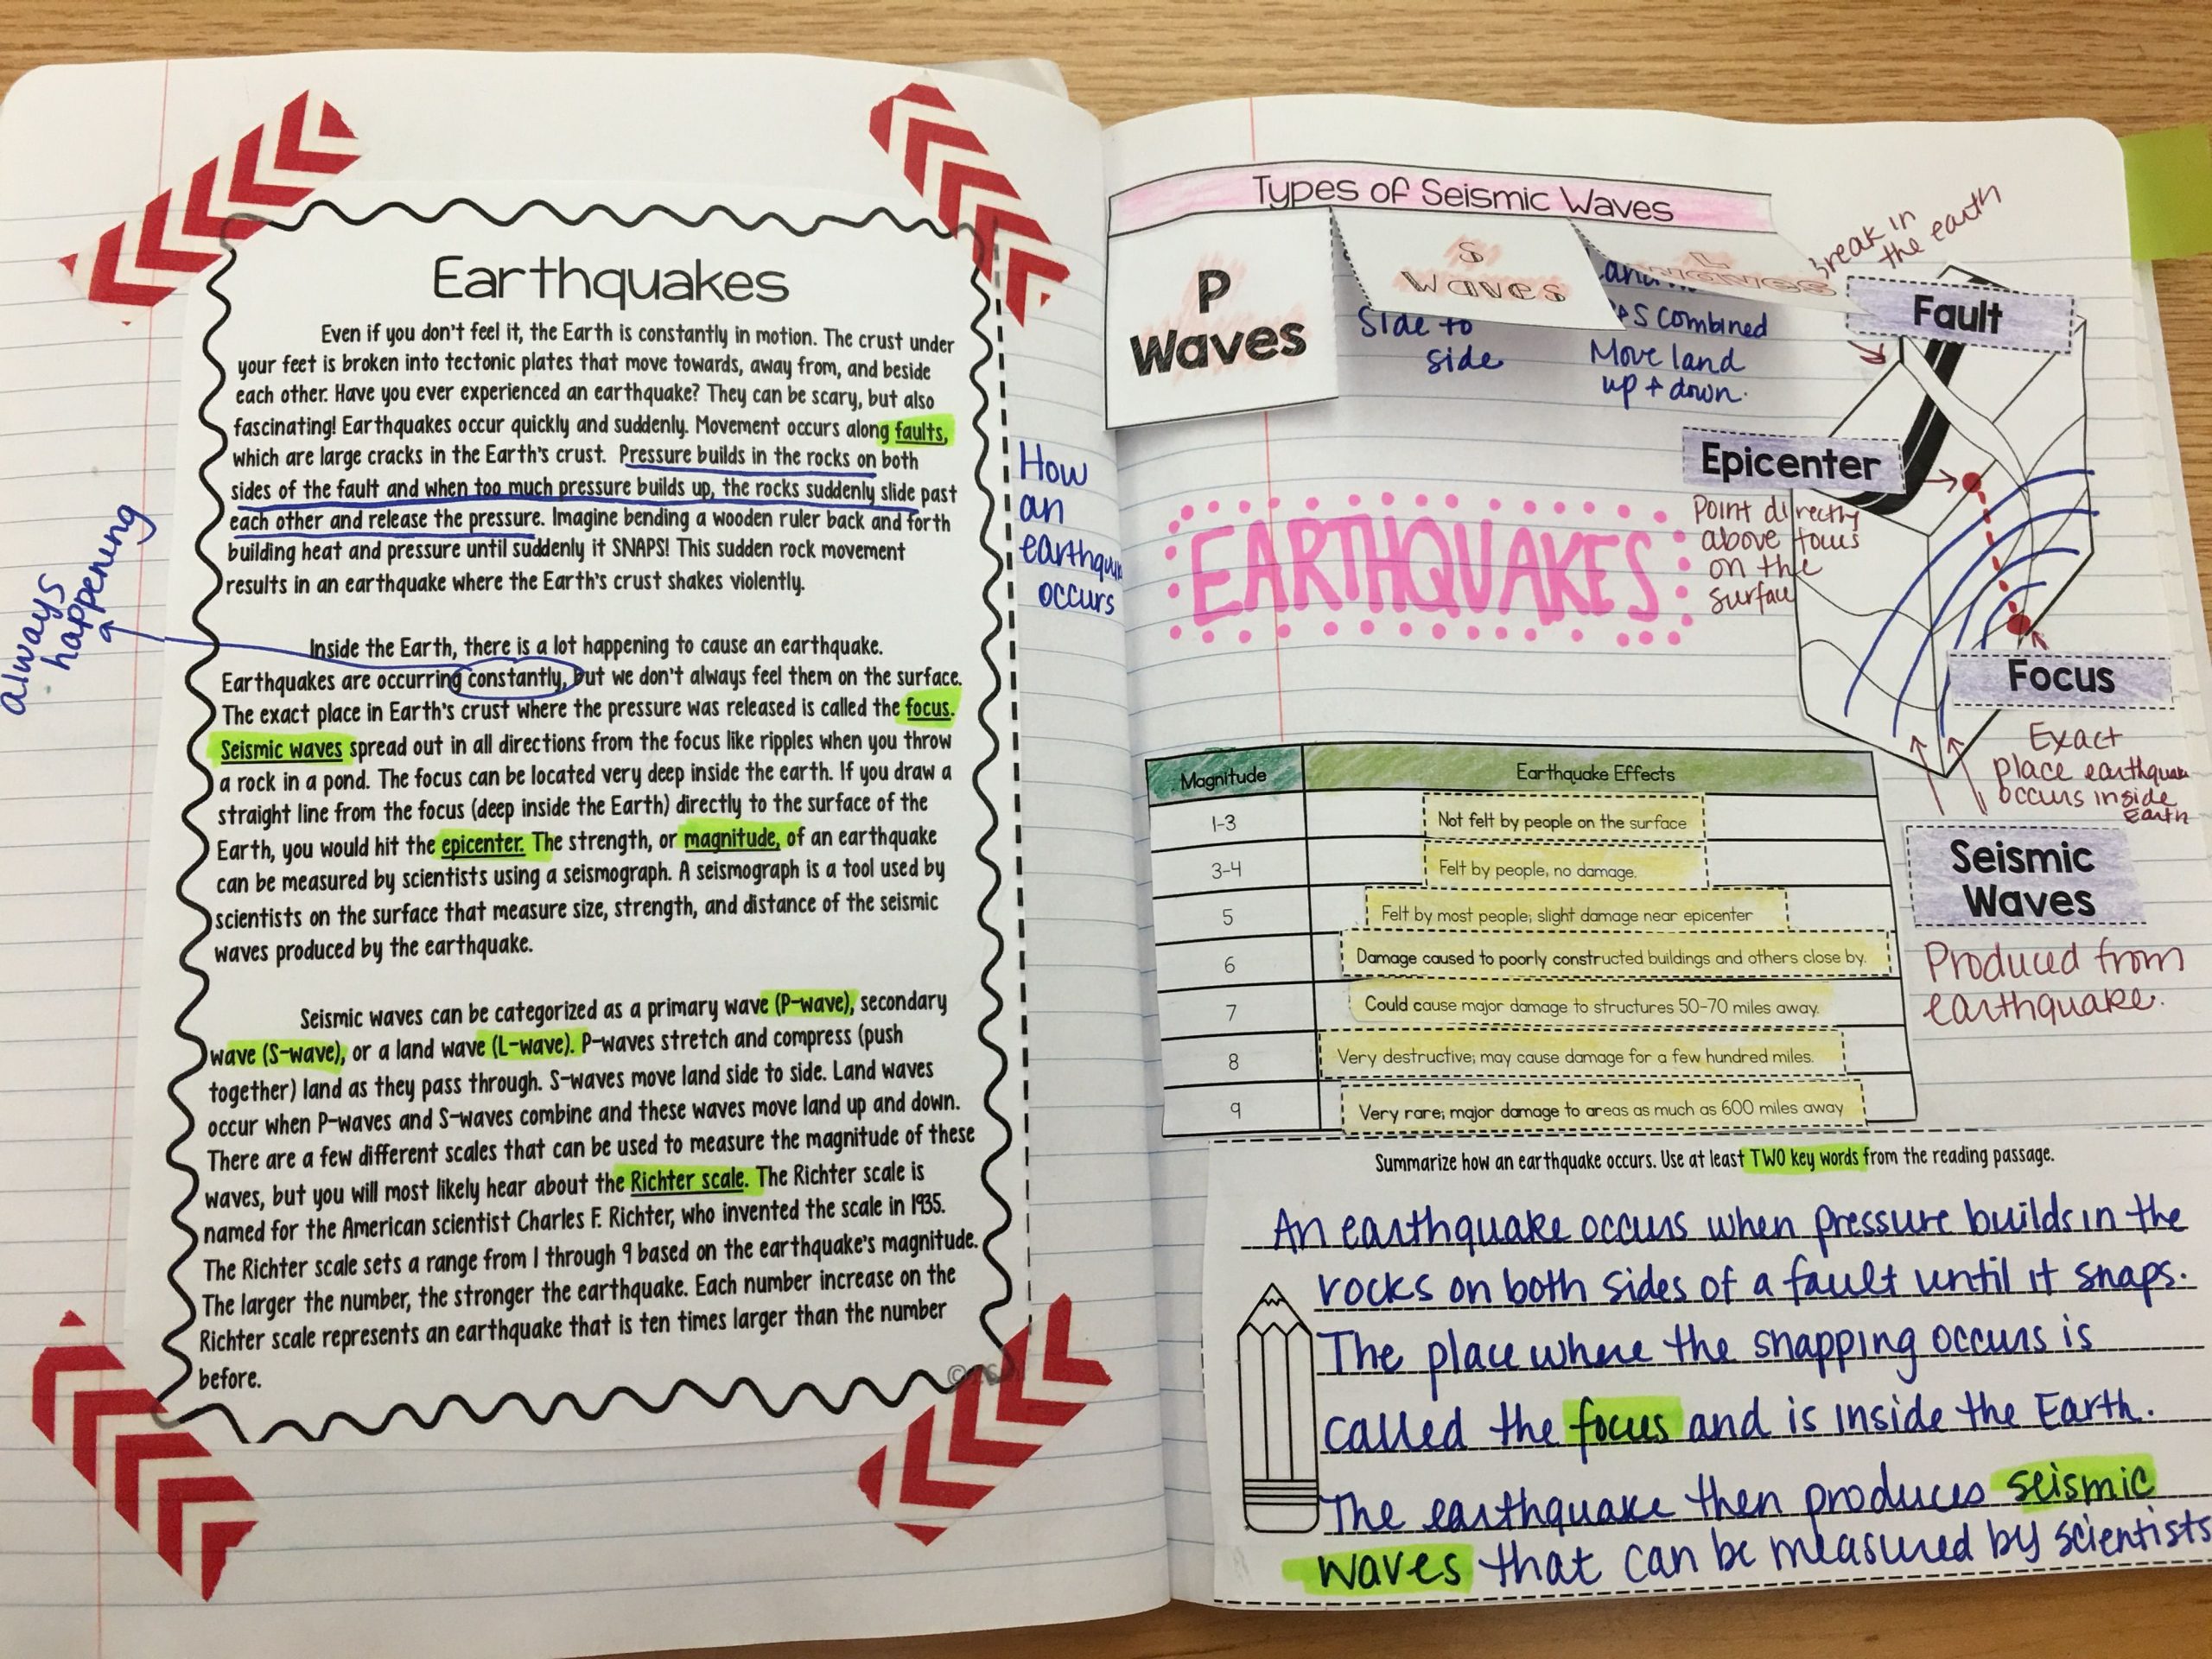 Earthquakes
Even if you don't feel it, the Earth is constantly in motion. The crust under
your feet is broken into tectonic plates that move towards, away from, and beside
each other. Have you ever experienced an earthquake? They can be scary, but also
fascinating! Earthquakes occur quickly and suddenly. Movement occurs along faults,
which are large cracks in the Earth's crust. Pressure builds in the rocks on both
sides of the fault and when too much pressure builds up, the rocks suddenly slide past
each other and release the pressure. Imagine bending a wooden ruler back and forth
building heat and pressure until suddenly it SNAPS! This sudden rock movement
results in an earthquake where the Earth's crust shakes violently.
Inside the Earth, there is a lot happening to cause an earthquake.
Earthquakes are occurring constantly, but we don't always feel them on the surface.
The exact place in Earth's crust where the pressure was released is called the focus.
Seismic waves spread out in all directions from the focus like ripples when you throw
a rock in a pond. The focus can be located very deep inside the earth. If you draw a
straight line from the focus (deep inside the Earth) directly to the surface of the
Earth, you would hit the epicenter. The strength, or magnitude, of an earthquake
can be measured by scientists using a seismograph. A seismograph is a tool used by
scientists on the surface that measure size, strength, and distance of the seismic
waves produced by the earthquake.
Seismic waves can be categorized as a primary wave (P-wave), secondary
wave (S-wave), or a land wave (L-wave). P-waves stretch and compress (push
together) land as they pass through. S-waves move land side to side. Land waves
occur when P-waves and S-waves combine and these waves move land up and down.
There are a few different scales that can be used to measure the magnitude of these
waves, but you will most likely hear about the Richter scale. The Richter scale is
named for the American scientist Charles F. Richter, who invented the scale in 1935.
The Richter scale sets a range from 1 through 9 based on the earthquake's magnitude.
The larger the number, the stronger the earthquake. Each number increase on the
Richter scale represents an earthquake that is ten times larger than the number
before.
always
happening
How
an
occurs
Types of Seismic Waves
P
Waves
S
Waves
Side to
side
L
Waves
combined
Move land
up + down.
break in
the earth
Fault
Epicenter
Point directly
above focus
on the
surface
EARTHQUAKES
Focus
Exact
place earthquake
occurs inside
Earth
Seismic
Waves
Produced from
earthquake.
Magnitude Earthquake Effects
1-3 Not felt by people on the surface
3-4 Felt by people, no damage.
5 Felt by most people; slight damage near epicenter
6 Damage caused to poorly constructed buildings and others close by.
7 Could cause major damage to structures 50-70 miles away.
8 Very destructive; may cause damage for a few hundred miles.
9 Very rare; major damage to areas as much as 600 miles away
Summarize how an earthquake occurs. Use at least TWO key words from the reading passage.
An earthquake occurs when pressure builds in the
rocks on both sides of a fault until it snaps.
The place where the snapping occurs is
called the focus and is inside the Earth.
The earthquake then produces seismic
waves that can be measured by scientists